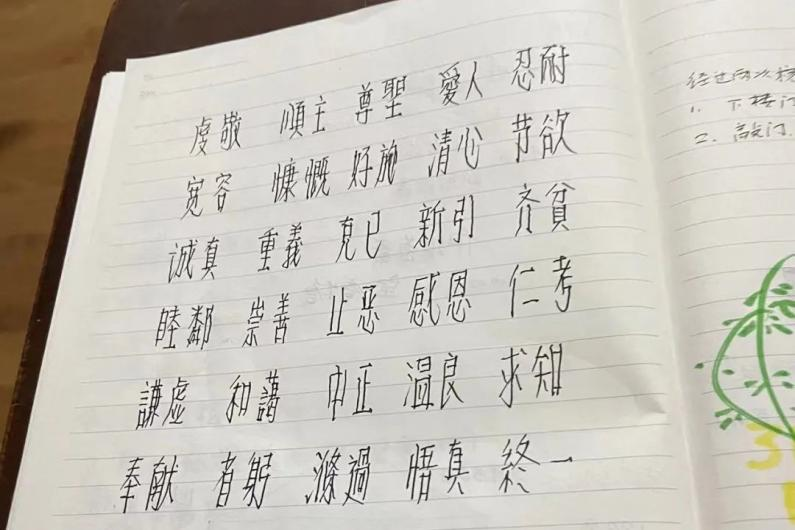 虔敬 順主 尊聖 愛人 忍耐
宽容 慷慨 好施 清心 节欲
诚真 重義 克己 新引 齐貧
睦鄰 崇善 止恶 感恩 仁考
謙虚 和藹 中正 温良 求知
奉献 省躬 滌過 悟真 終一
经过两次
1. 下楼门
2. 敲门